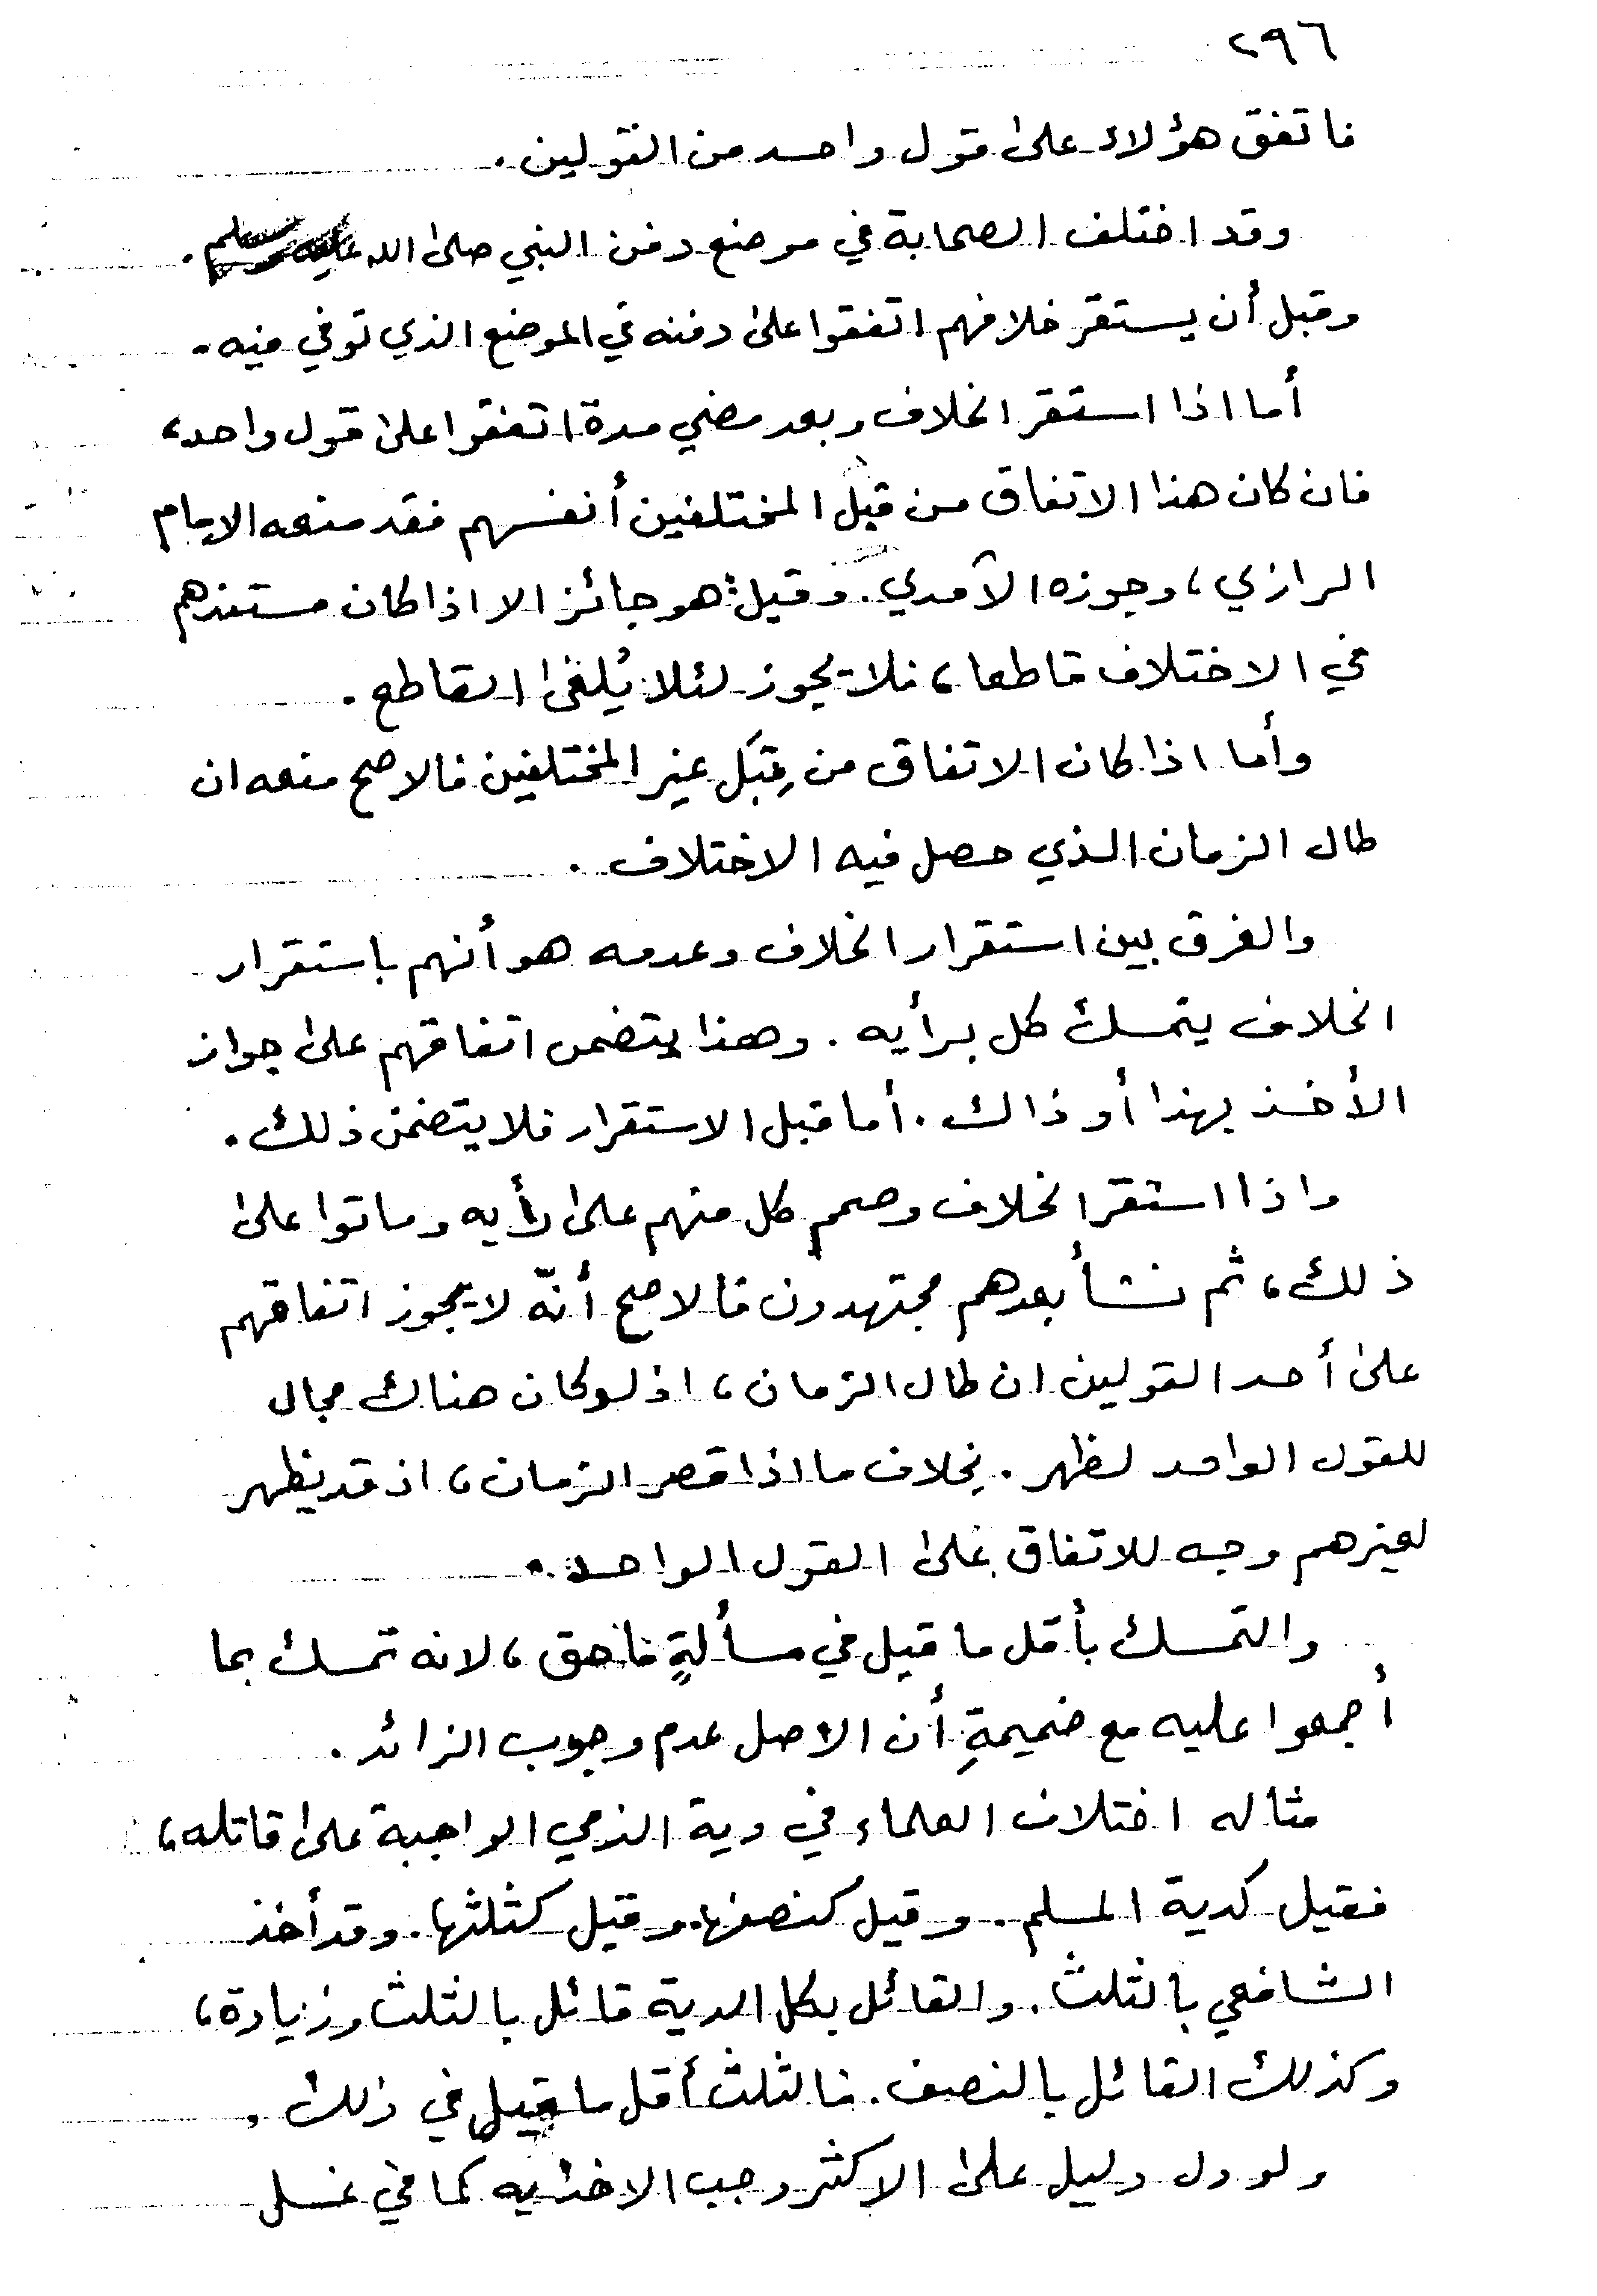 ٢٩٦
فاتفق هؤلاء على قول واحد من القولين .
وقد اختلف الصحابة في موضع دفن النبي صلى الله عليه وسلم .
وقبل أن يستقر خلافهم اتفقوا على دفنه في الموضع الذي توفي فيه .
أما اذا استقر الخلاف وبعد مضي مدة اتفقوا على قول واحد ،
فان كان هذا الاتفاق من قبل المختلفين أنفسهم فقد منعه الامام
الرازي ، وجوزه الآمدي . وقيل : هو جائز الا اذا كان مستندهم
في الاختلاف قاطعا ، فلا يجوز لئلا يُلغى القاطع .
وأما اذا كان الاتفاق من قِبَل غير المختلفين فالاصح منعه ان
طال الزمان الذي حصل فيه الاختلاف .
والفرق بين استقرار الخلاف وعدمه هو أنهم باستقرار
الخلاف يتمسك كل برأيه . وهذا يتضمن اتفاقهم على جواز
الأخذ بهذا أو ذاك . أما قبل الاستقرار فلا يتضمن ذلك .
واذا استقر الخلاف وصمم كل منهم على رأيه وماتوا على
ذلك ، ثم نشأ بعدهم مجتهدون فالاصح أنّه لا يجوز اتفاقهم
على أحد القولين ان طال الزمان ، اذ لو كان هناك مجال
للقول الواحد لظهر . بخلاف ما اذا قصر الزمان ، اذ قد يظهر
لغيرهم وجه للاتفاق على القول الواحد .
والتمسك بأقل ما قيل في مسألةٍ ما حق ، لانه تمسك بما
أجمعوا عليه مع ضميمةِ أن الاصل عدم وجوب الزائد .
مثاله اختلاف العلماء في دية الذمي الواجبة على قاتله ،
فقيل كدية المسلم . وقيل كنصفها . وقيل كثلثها . وقد أخذ
الشافعي بالثلث . والقائل بكل الدية قائل بالثلث وزيادة ،
وكذلك القائل بالنصف . فالثلث أقل ما قيل في ذلك .
ولو دل دليل على الاكثر وجب الاخذ به كما في غسل